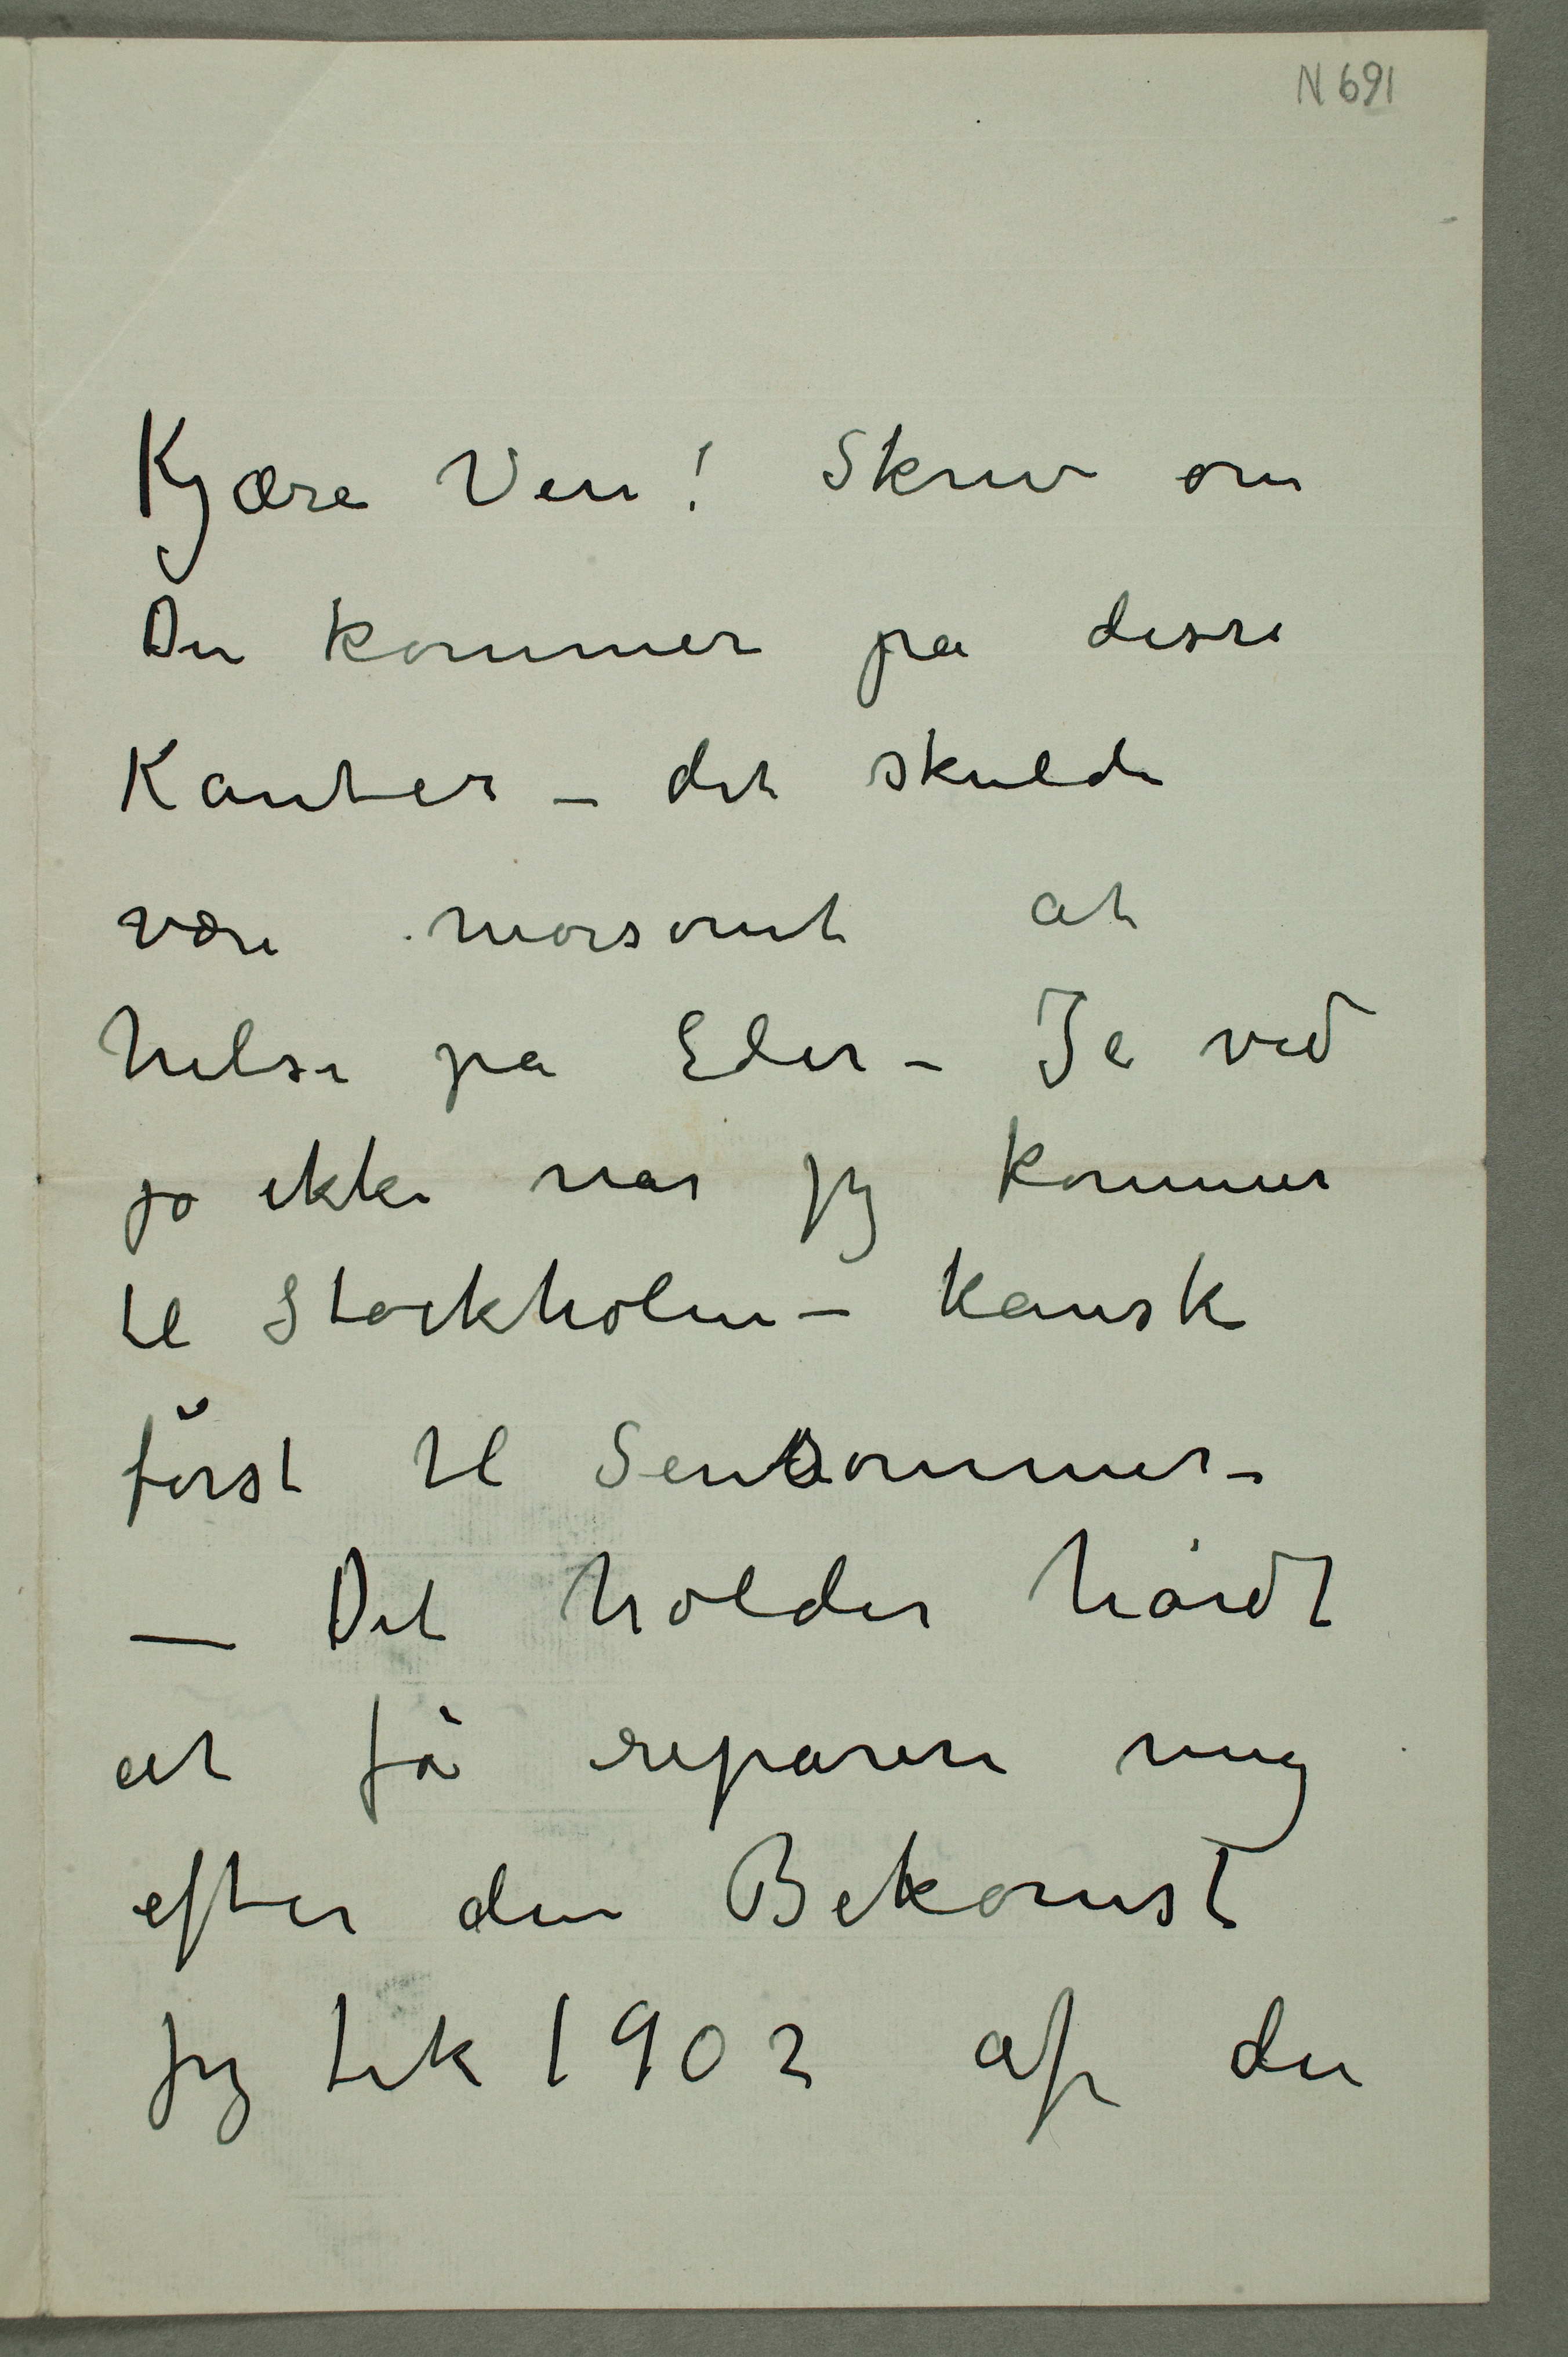 N 691
Kjære Ven! Skriv om
Du kommer på disse
Kanter – det skulde
være morsomt at
hilse på Eder – Je ved
jo ikke når jeg kommer
til Stockholm – kanske
først til Sensommer –
— Det holder hårdt
at få reparere mig
efter den Bekomst
jeg fik 1902 af den